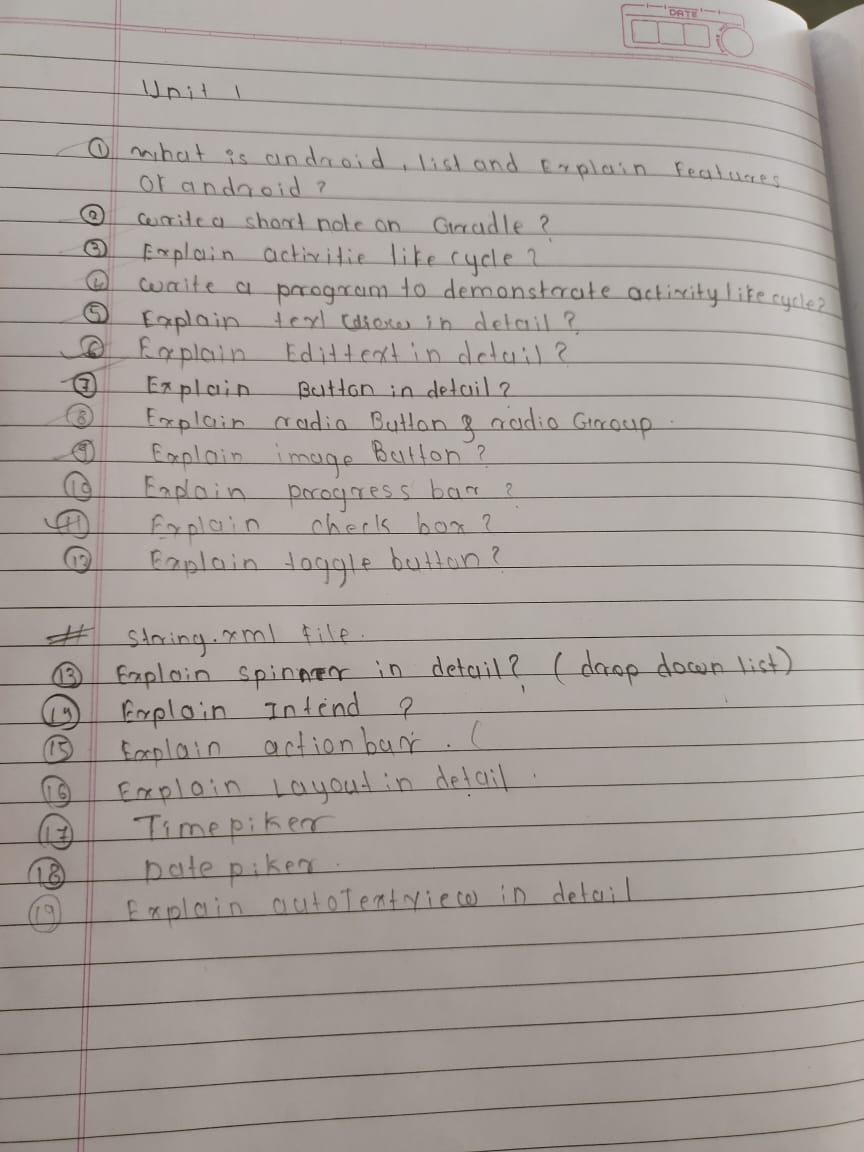 DATE
Unit 1
① What is android, list and Explain Features
of android?
② write a short note on Gradle?
③ Explain activitie like cycle?
④ write a program to demonstrate activity like cycle?
⑤ Explain text view in detail?
⑥ Explain Edittext in detail?
⑦ Explain Button in detail?
⑧ Explain radio Button & radio Group.
⑨ Explain image Button?
⑩ Explain progress bar?
⑪ Explain check box?
⑫ Explain toggle button?
# string.xml file.
⑬ Explain spinner in detail? (drop down list)
⑭ Explain Intend?
⑮ Explain actionbar. (
⑯ Explain Layout in detail.
⑰ Timepiker
⑱ Date piker.
⑲ Explain autoTextview in detail